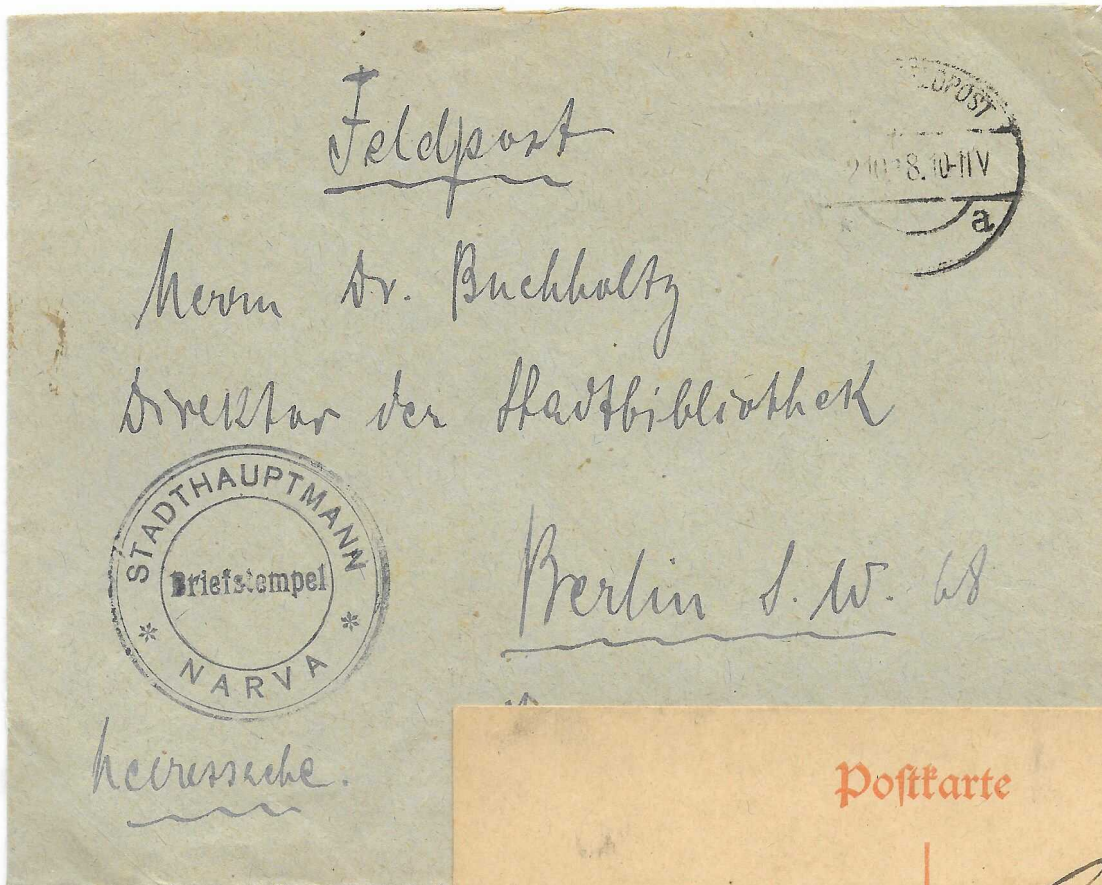 Feldpost
LDPOST
2.10.18.10-11V
a
Herrn Dr. Buchholtz
Direktor der Stadtbibliothek
STADTHAUPTMANN
Briefstempel
* NARVA *
Berlin S.W. 68
Heeressache.
Postkarte